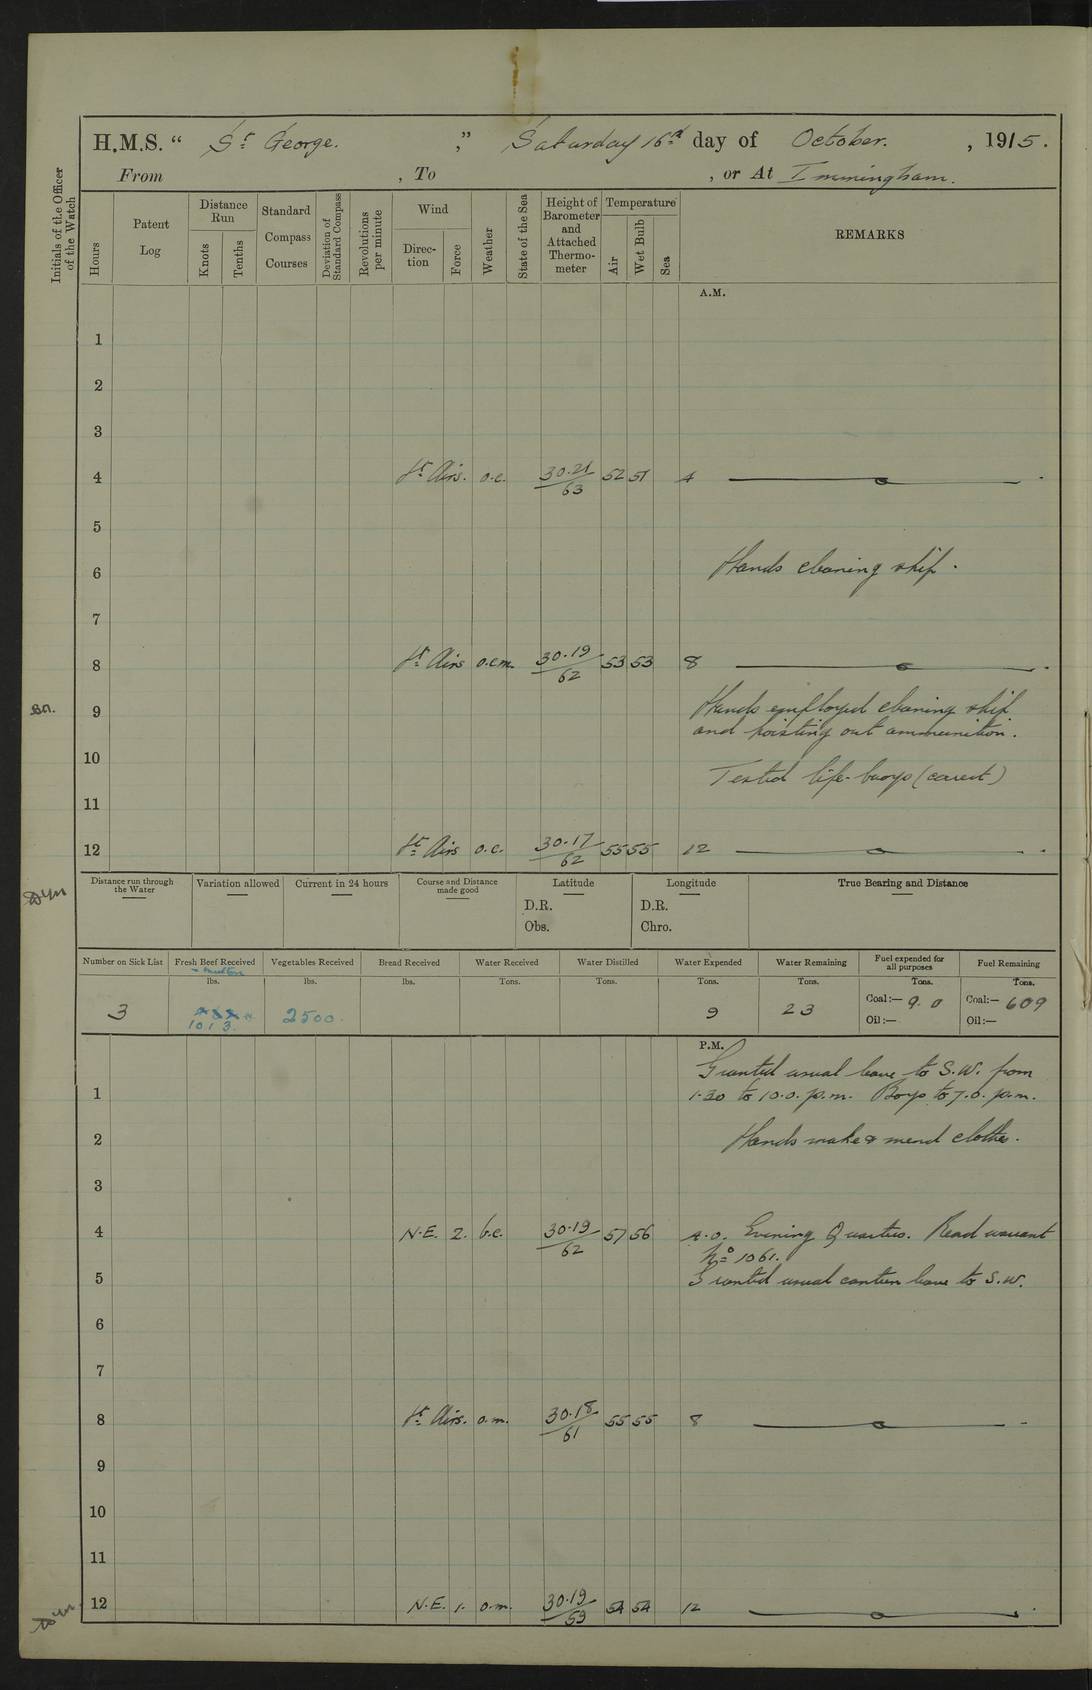 H.M.S. “ St George. ,” Saturday 16th day of October. , 1915.
From , To , or At Immingham.
Initials of the Officer of the Watch
Hours
Patent Log
Distance Run
Knots
Tenths
Standard Compass Courses
Deviation of Standard Compass
Revolutions per minute
Wind
Direc-tion
Force
Weather
State of the Sea
Height of Barometer and Attached Thermo-meter
Temperature
Air
Wet Bulb
Sea
REMARKS
A.M.
1
2
3
4 Lt Airs. o.c. 30.21/63 52 51 4
5
6 Hands cleaning ship.
7
8 Lt Airs o.c.m. 30.19/62 53 53 8
9 Hands employed cleaning ship
and hoisting out ammunition.
10 Tested life-buoys (correct)
11
12 Lt Airs o.c. 30.17/62 55 55 12
Distance run through the Water
Variation allowed
Current in 24 hours
Course and Distance made good
Latitude
D.R.
Obs.
Longitude
D.R.
Chro.
True Bearing and Distance
Number on Sick List
3
Fresh Beef Received
+ mutton
lbs.
1013.
Vegetables Received
lbs.
2500.
Bread Received
lbs.
Water Received
Tons.
Water Distilled
Tons.
Water Expended
Tons.
9
Water Remaining
Tons.
23
Fuel expended for all purposes
Tons.
Coal:— 9.0
Oil:—
Fuel Remaining
Tons.
Coal:— 609
Oil:—
P.M.
Granted usual leave to S.W. from
1 1.30 to 10.0. p.m. Boys to 7.0. p.m.
2 Hands make & mend clothes.
3
4 N.E. 2. b.c. 30.19/62 57 56 4.0. Evening Quarters. Read warrant
No 1061.
5 Granted usual canteen leave to S.W.
6
7
8 Lt Airs. o.m. 30.18/61 55 55 8
9
10
11
12 N.E. 1. o.m. 30.19/59 54 54 12